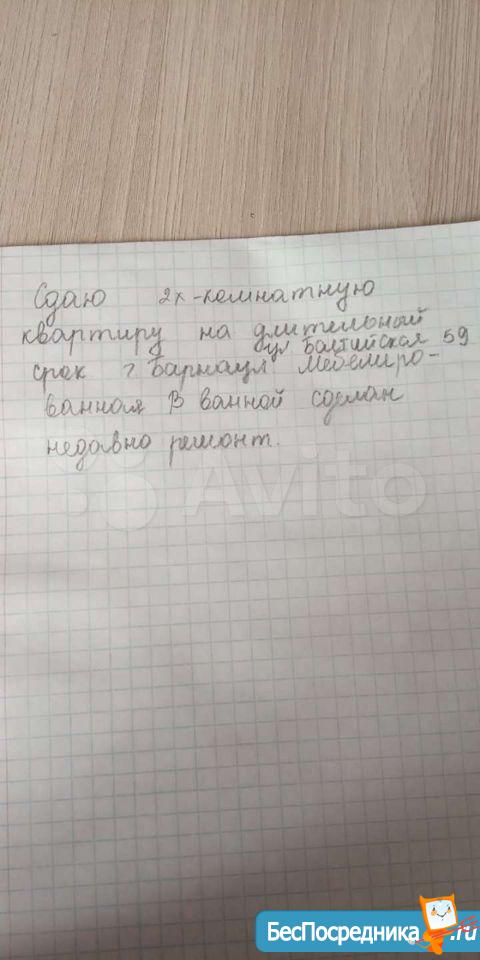 Сдаю 2х-комнатную
квартиру на длительный
ул Балтийская 59
срок г Барнаул Меблиро-
ванная В ванной сделан
недавно ремонт.
Avito
БесПосредника.ru